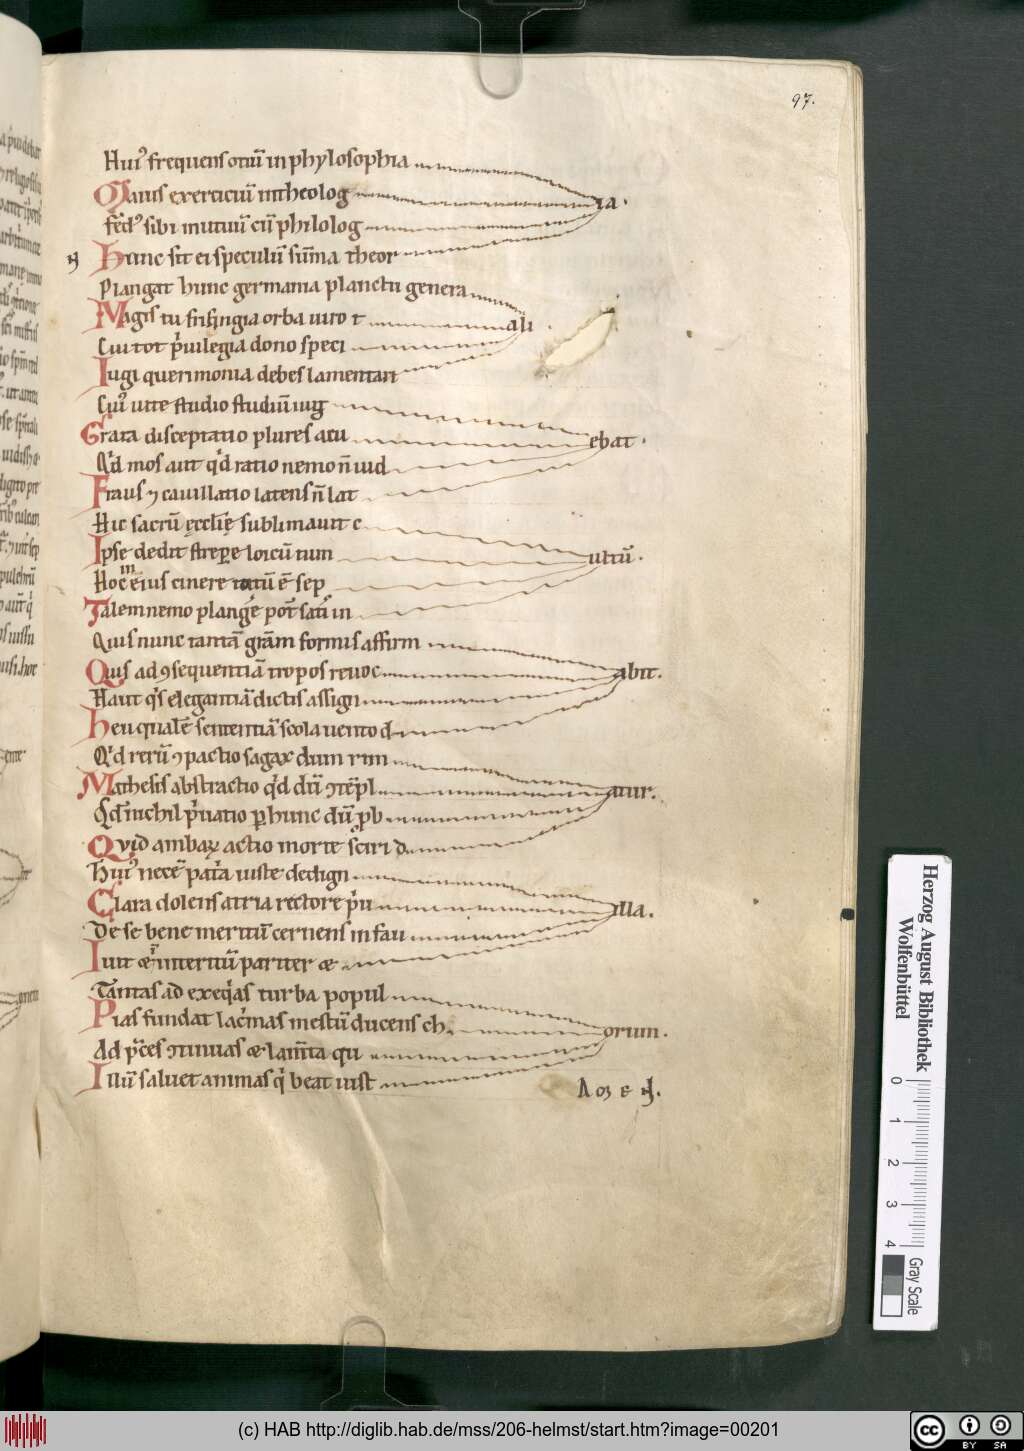 97.
Huiꝰ frequens otiū in phylosophia
Qanis exerciciū in theolog ia.
Fed̛ꝰ sibi mutuū cū philolog
H Hunc sit ei speculū sūma theor
Plangat hunc germania planctu genera
Magis tu frisingia orba uiro t ali.
Cui tot p̛uilegia dono speci
Iugi querimonia debes lamentari
Cuiꝰ uite studio studiū iug
Grata disceptatio plures acu ebat.
Qd̛ mos aut qd̛ ratio nemo n̄ uid
Fraus ⁊ cauillatio latens n̄ lat
Hic sacrū ęcclīę sublimauit c
Ipse dedit strepere loicū tum ultū.
Hoc in eius cinere totū ē sep
Talem nemo plangere pot̄ sati in
Quis nunc tantā gr̄am formis affirm
Quis ad ꝯsequentiā tropos reuoc abit.
Haut qͥs elegantiā dictis assign
Heu qualē sententiā scola uento d
Qd̛ rerū ꝯpactio sagax dum rim
Mathesis abstractio qd̛ dū ꝯtēpl atur.
Qd̛ nichil p̛uatio ꝑ hunc dū ꝓb
Quid ambaꝝ actio morte sciri d
Huiꝰ necē pat̛a iuste dedign
Clara dolens atria rectore p̛u illa.
De se bene meritū cernens in fau
Iuit & interitū pariter &
Tantas ad exeq̛as turba popul
Pias fundat lac̛mas mestū ducens ch orum.
Ad p̛ces ꝯtinuas & lam̄ta qu
Illū saluet animas qͥ beat iust
(c) HAB http://diglib.hab.de/mss/206-helmst/start.htm?image=00201
Herzog August Bibliothek
Wolfenbüttel
0 1 2 3 4
Gray Scale
cc BY SA